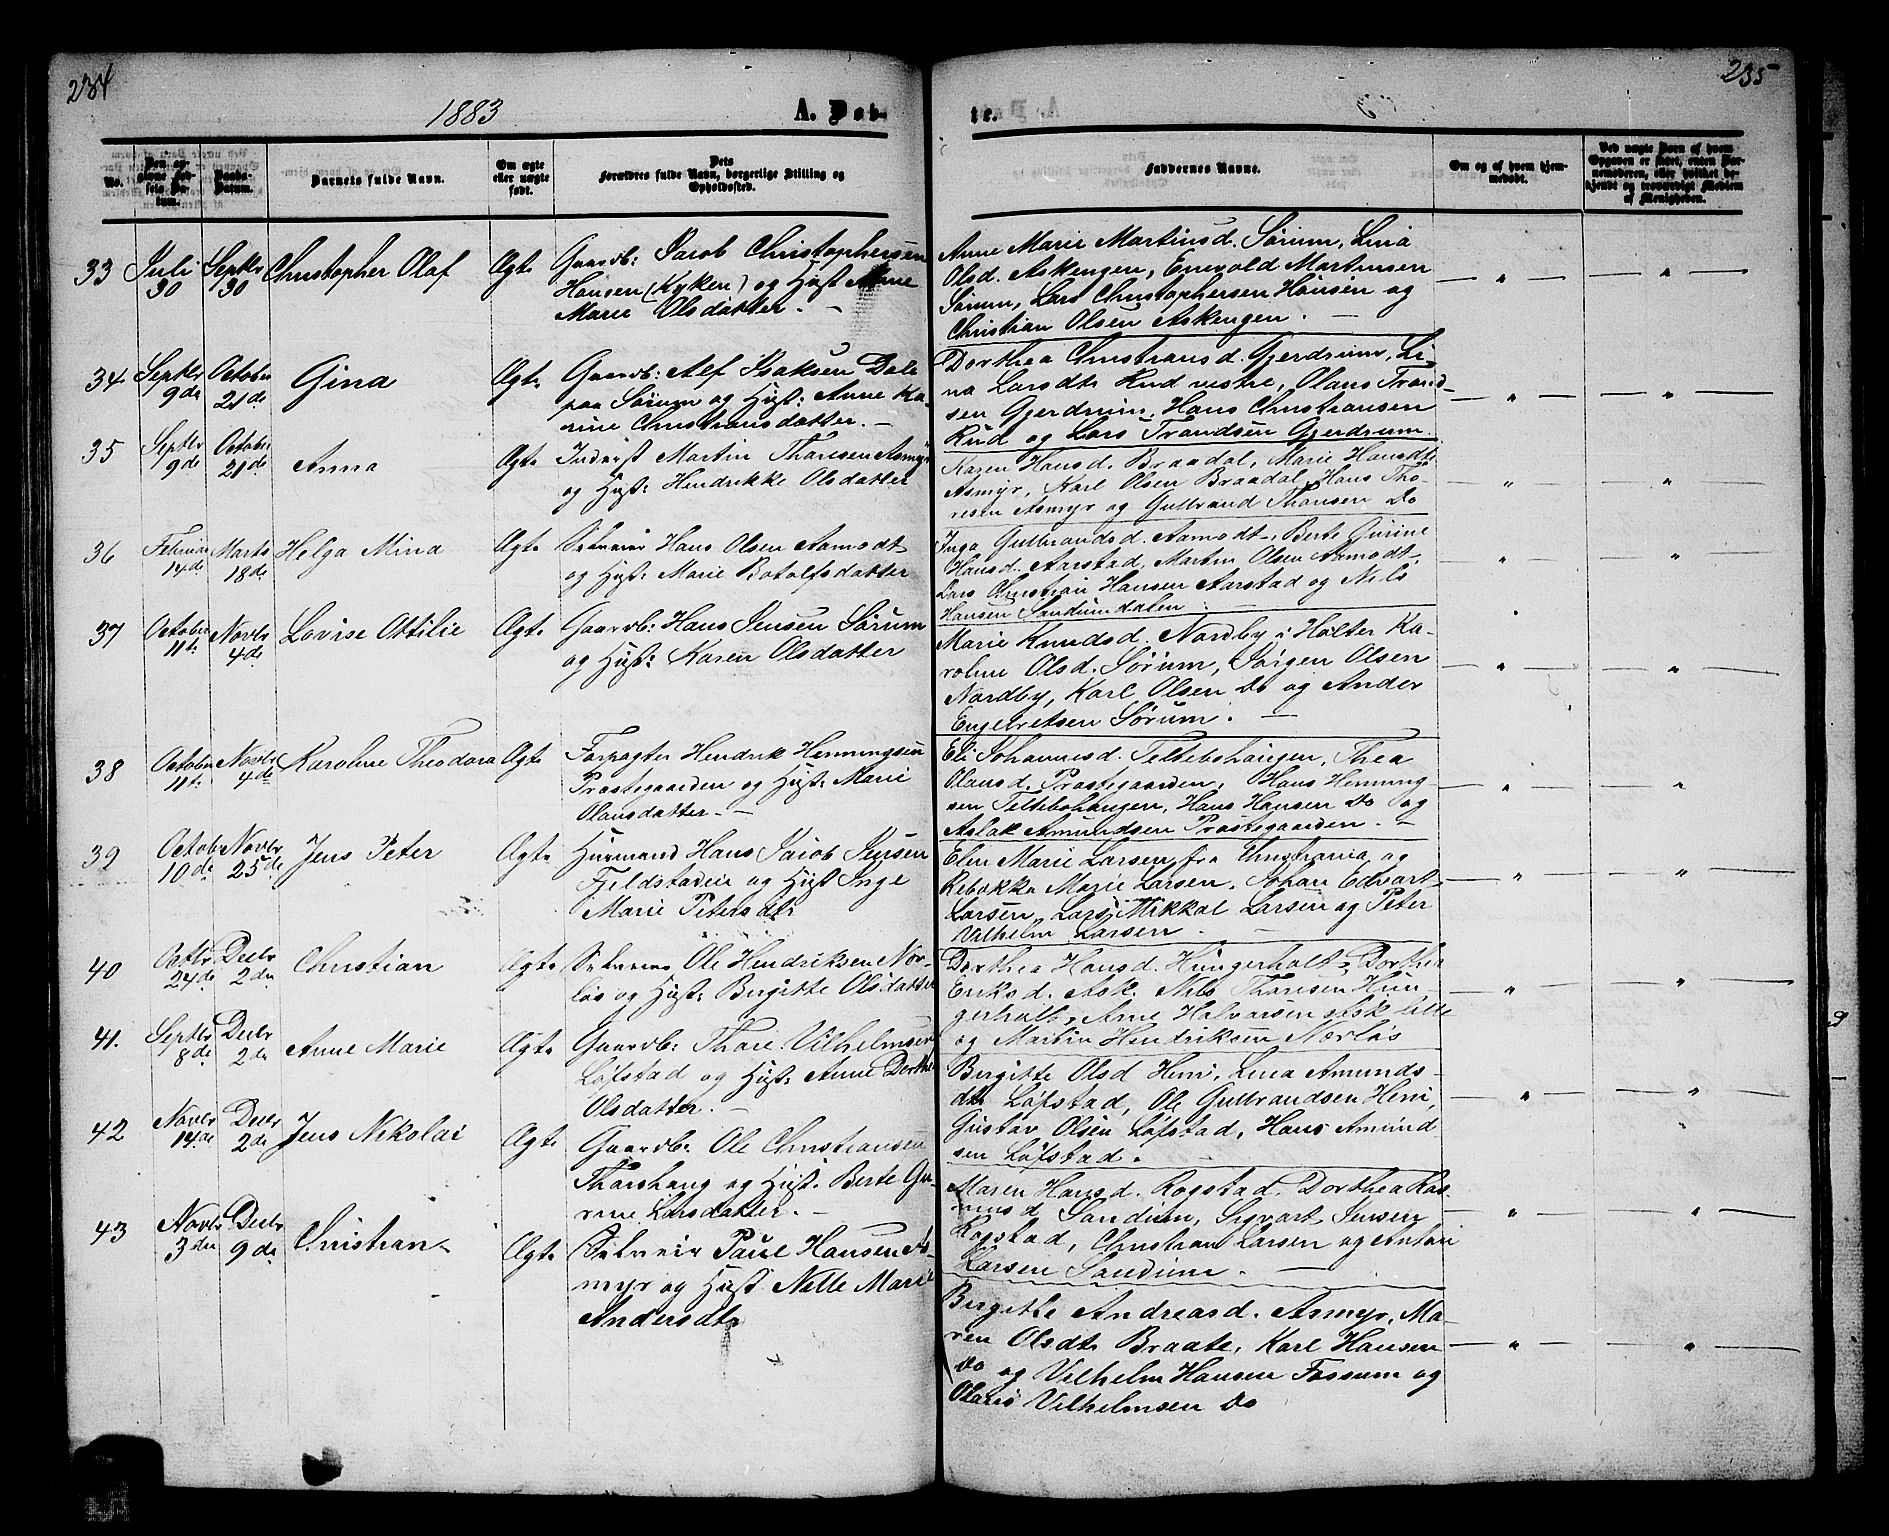 234
1883
A. Døb-
No.
Den opgivne Fødsels Datum.
Daabs-Datum.
Barnets fulde Navn.
Om ægte eller uægte født.
Dets Forældres fulde Navn, borgerlige Stilling og Opholdssted.
33 Juli 30 Septbr 30 Christopher Olaf Ægte Gaardb: Jacob Christophersen
Hansen (Kyken) og Hust Anne
Marie Olsdatter. —
34 Septbr 9de October 21de Gina Ægte Gaardb: Alf Isaksen Dale
paa Sørum og Hust: Anne Ka-
rine Christiansdatter. —
35 Septbr 9de October 21de Anna Ægte Inderst Martin Thoresen Asmyr
og Hust: Hendrikke Olsdatter
36 Februar 14de Marts 18de Helga Mina Ægte Selveier Hans Olsen Aamodt
og Hust: Marie Botolfsdatter
37 October 11te Novbr 4de Lovise Ottilie Ægte Gaardb: Hans Jensen Sørum
og Hust: Karen Olsdatter
38 October 11te Novbr 4de Karoline Theodora Ægte Forpagter Hendrik Henningsen
Præstegaarden og Hust: Marie
Olausdatter. —
39 Octob 10de Novbr 25de Jens Peter Ægte Huusmand Hans Jacob Jensen
Fjeldstadeie og Hust Inge
Marie Petersdtr
40 Octbr 24de Decbr 2den Christian Ægte Selveier Ole Hendriksen Nor-
løs og Hust: Birgitte Olsdatter
41. Septbr 8de Decbr 2de Anne Marie Ægte Gaardb: Thore Vilhelmsen
Løfstad og Hust: Anne Dorthe
Olsdatter. —
42 Novbr 14de Decbr 2de Jens Nikolai Ægte Gaardb: Ole Christiansen
Thorshaug og Hust. Berte Gu-
rine Larsdatter. —
43 Novbr 3die Decbr 9de Christian Ægte Selveier Paul Hansen As-
myr og Hust Nelle Marie
Andersdtr
235
te.
Faddernes Navne.
Om og af hvem hjemmedøbt.
Ved uægte Børn af hvem Opgaven er skeet, enten Barnemoderen, eller hvilket bekjendt og troværdigt Medlem af Menigheden.
Anne Marie Martinsd. Sørum, Lina
Olsd. Askengen, Enevold Martinsen
Sørum, Lars Christophersen Hansen og
Christian Olsen Askengen. —
Dorthea Christiansd. Gjerdrum, Li-
na Larsdtr Rud vestre, Olaus Trond-
sen Gjerdrum, Hans Christiansen
Rud og Lars Trondsen Gjerdrum.
Karen Hansd. Braadal, Marie Hansdtr
Asmyr, Karl Olsen Braadal, Hans Tho-
resen Asmyr og Gulbrand Thoresen Do
Inga Gulbrandsd. Aamodt, Berte Gurine
Hansd. Aarstad, Martin Olsen Aamodt
Lars Christian Hansen Aarstad og Nils
Hansen Sandumdalen
Marie Knudsd. Nordby i Holter Ka-
roline Olsd. Sørum, Jørgen Olsen
Nordby, Karl Olsen Do og Ander
Engebretsen Sørum. —
Eli Johannesd. Teltebohaugen, Thea
Olausd. Præstegaarden, Hans Henning-
sen Teltebohaugen, Hans Hansen Do og
Aslak Amundsen Præstegaarden. —
Elen Marie Larsen fra Christiania og
Rebekka Marie Larsen, Johan Edvart
Larsen, Lars Mikkal Larsen og Peter
Vilhelm Larsen. —
Dorthea Hansd. Hungerholt, Dorthea
Eriksd. Ask, Nils Thoresen Hun-
gerholt, Arne Halvorsen Ask lille
og Martin Hendriksen Norløs
Birgitte Olsd Heni, Lina Amunds-
dtr Løfstad, Ole Gulbrandsen Heni,
Gustav Olsen Løfstad, Hans Amund
sen Løfstad. —
Maren Hansd. Rogstad, Dorthea Ras-
musd Sandum, Sigvart Jensen
Rogstad, Christian Larsen og Anton
Larsen Sandum. —
Birgitte Andreasd. Asmyr, Ma-
ren Olsdtr Braate, Karl Hansen
Do og Vilhelm Hansen Fossum og
Olaus Vilhelmsen Do